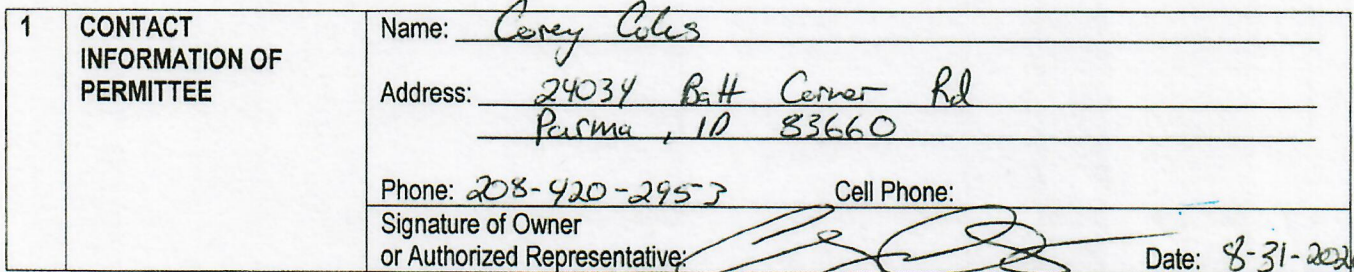 1 CONTACT INFORMATION OF PERMITTEE
Name: Corey Coles
Address: 24034 Batt Corner Rd
Parma, ID 83660
Phone: 208-420-2953 Cell Phone:
Signature of Owner
or Authorized Representative: Date: 8-31-